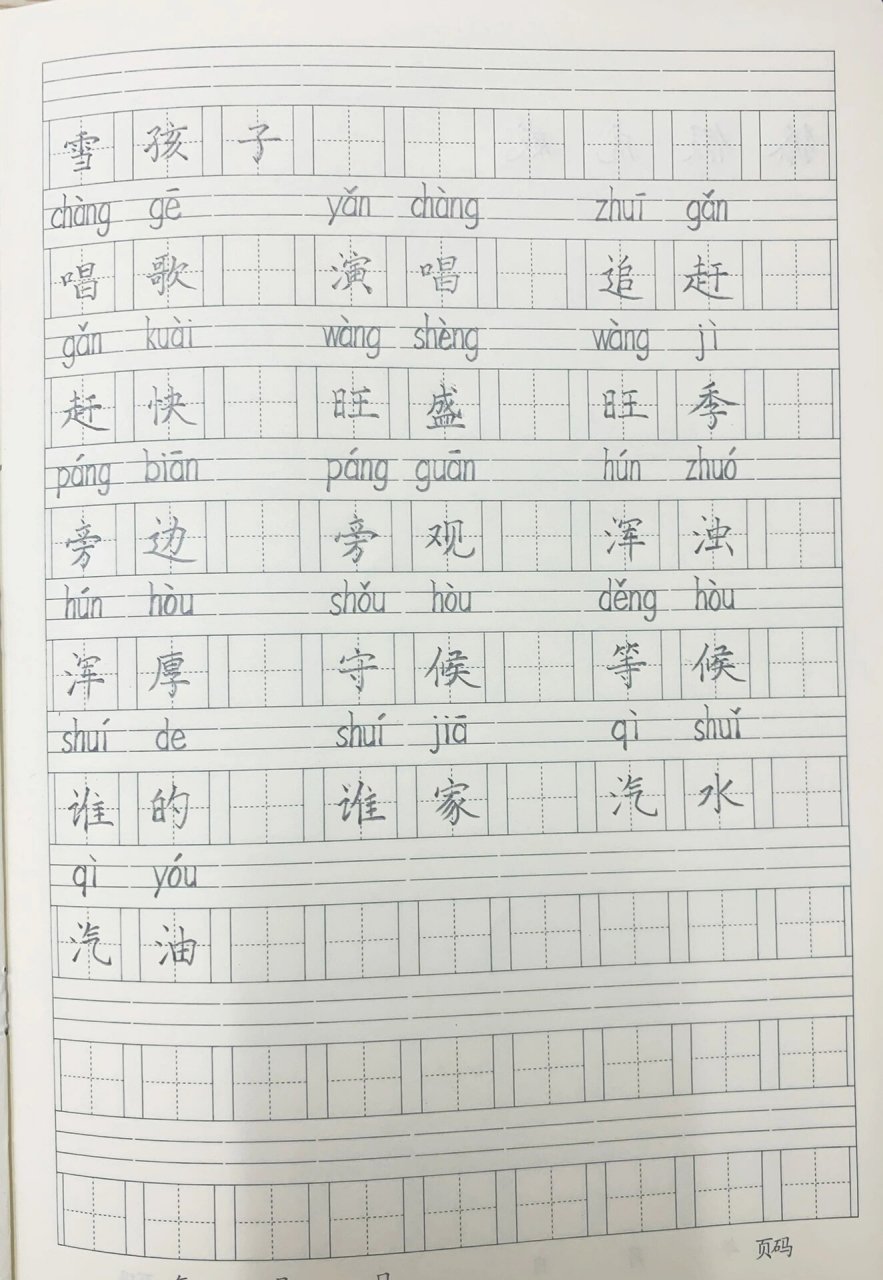 雪孩子
chàng gē yǎn chàng zhuī gǎn
唱歌 演唱 追赶
gǎn kuài wàng shèng wàng jì
赶快 旺盛 旺季
páng biān páng guān hún zhuó
旁边 旁观 浑浊
hún hòu shǒu hòu děng hòu
浑厚 守候 等候
shuí de shuí jiā qì shuǐ
谁的 谁家 汽水
qì yóu
汽油
页码